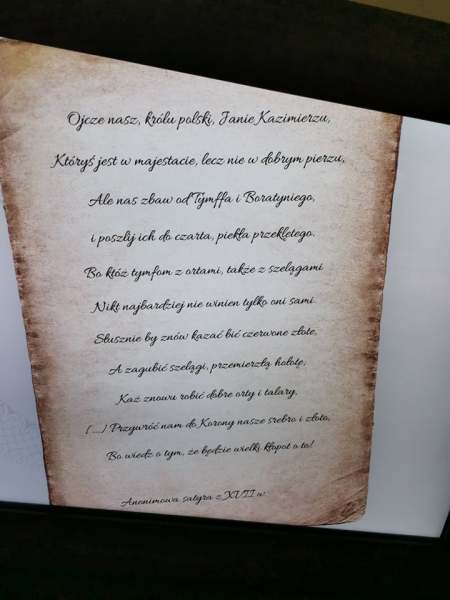 Ojcze nasz, królu polski, Janie Kazimierzu,
Któryś jest w majestacie, lecz nie w dobrym pierzu,
Ale nas zbaw od Tymffa i Boratyniego,
i poszlij ich do czarta, piekła przeklętego.
Bo któż tymfom z ortami, także z szelągami
Nikt najbardziej nie winien tylko oni sami
Słusznie by znów kazać bić czerwone złote,
A zagubić szelągi, przemierzłą hołotę,
Każ znowu robić dobre orty i talary,
[...] Przywróć nam do Korony nasze srebro i złoto,
Bo wiedz o tym, że będzie wielki kłopot o to!
Anonimowa satyra z XVII w.